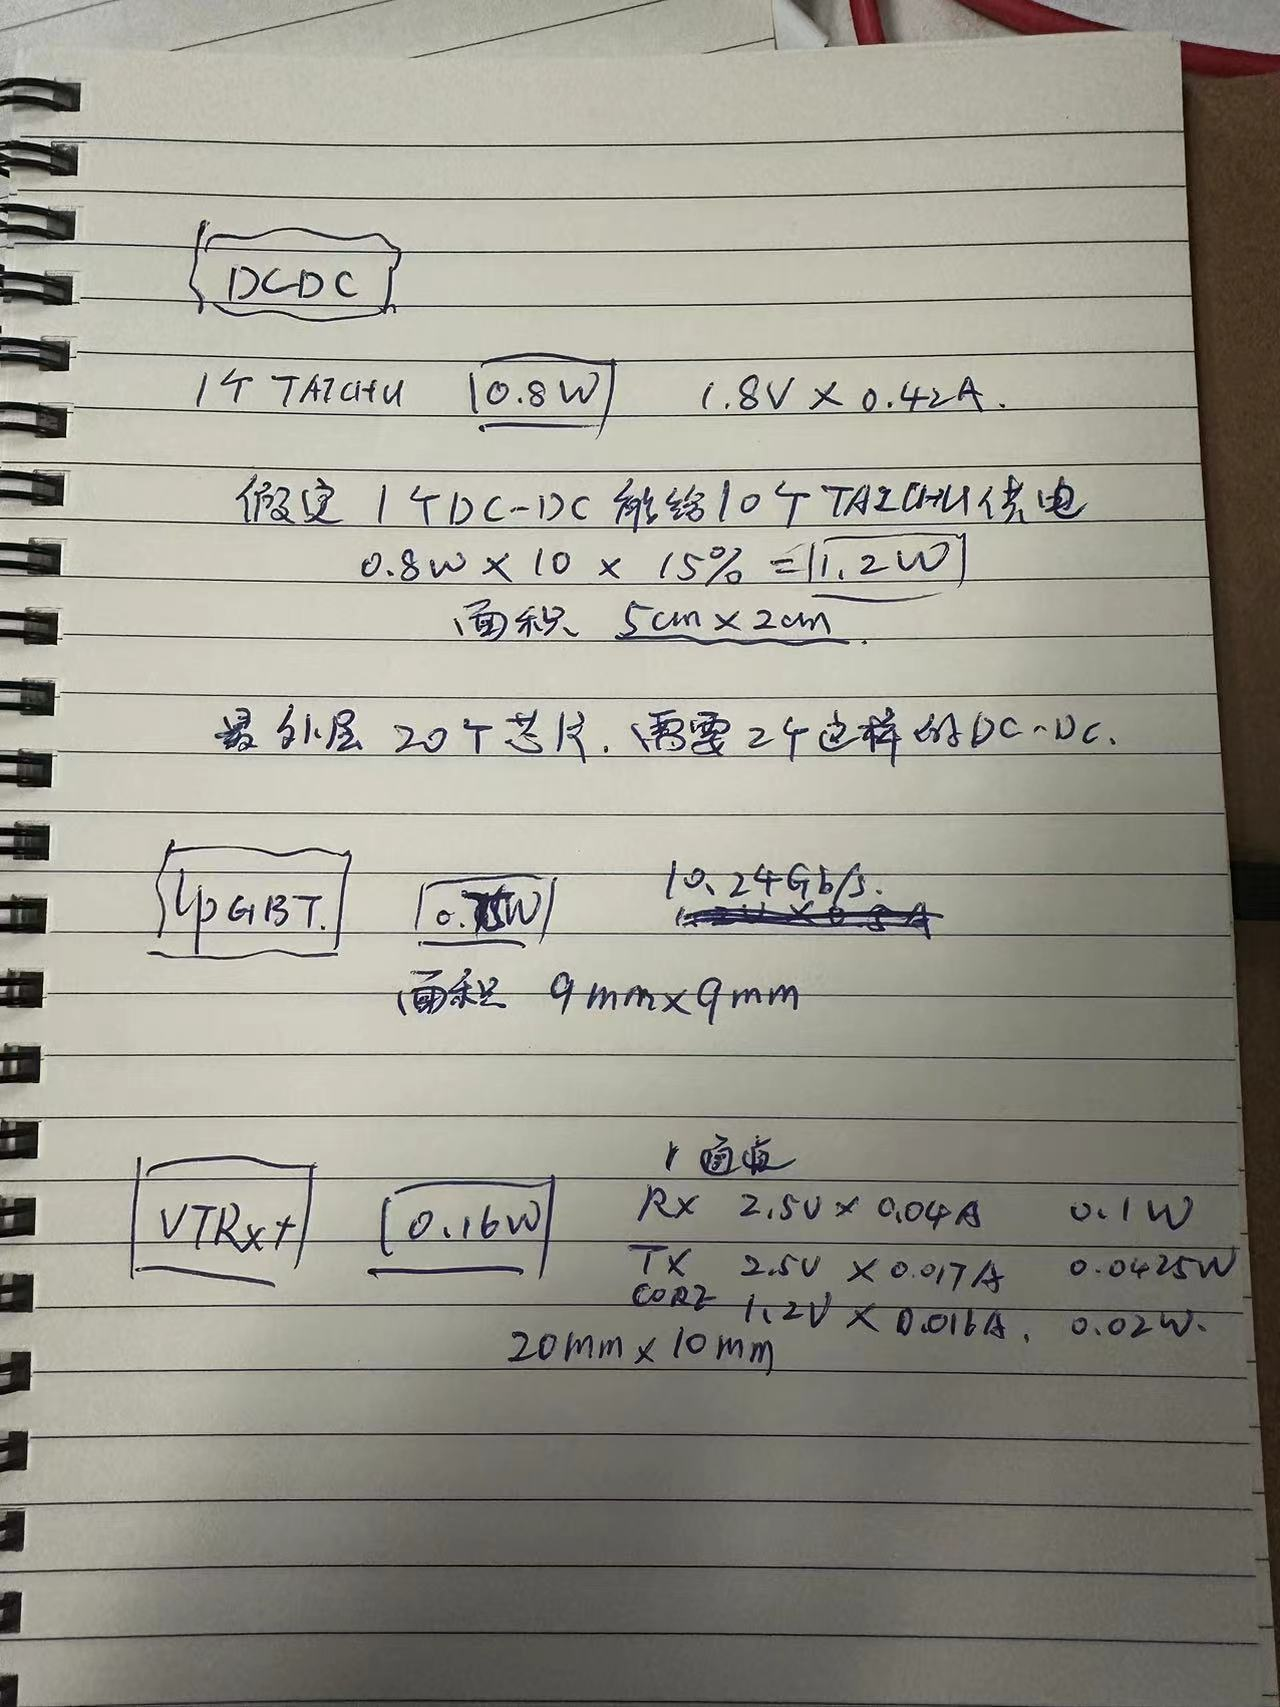 DCDC
1个 TAICHU 0.8W 1.8V × 0.42A.
假定 1个DC-DC 能给10个TAICHU供电
0.8W × 10 × 15% = 1.2W
面积 5cm × 2cm.
最外层 20个芯片. 需要2个这样的DC-DC.
lpGBT. 0.75W 10.24Gb/s.
面积 9mm×9mm
1通道
VTRx+ 0.16W Rx 2.5V × 0.04A 0.1W
TX 2.5V × 0.017A 0.0425W
CORE 1.2V × 0.016A. 0.02W.
20mm × 10mm